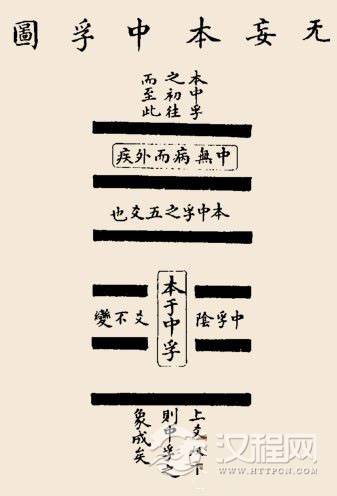 无妄本中孚圖
本中孚
之初往
而至此
中無病而外疾
本中孚之五爻也
中孚陰
本于中孚
爻不變
上爻下
則中孚之
象成矣
汉程网
WWW.HTTPCN.COM